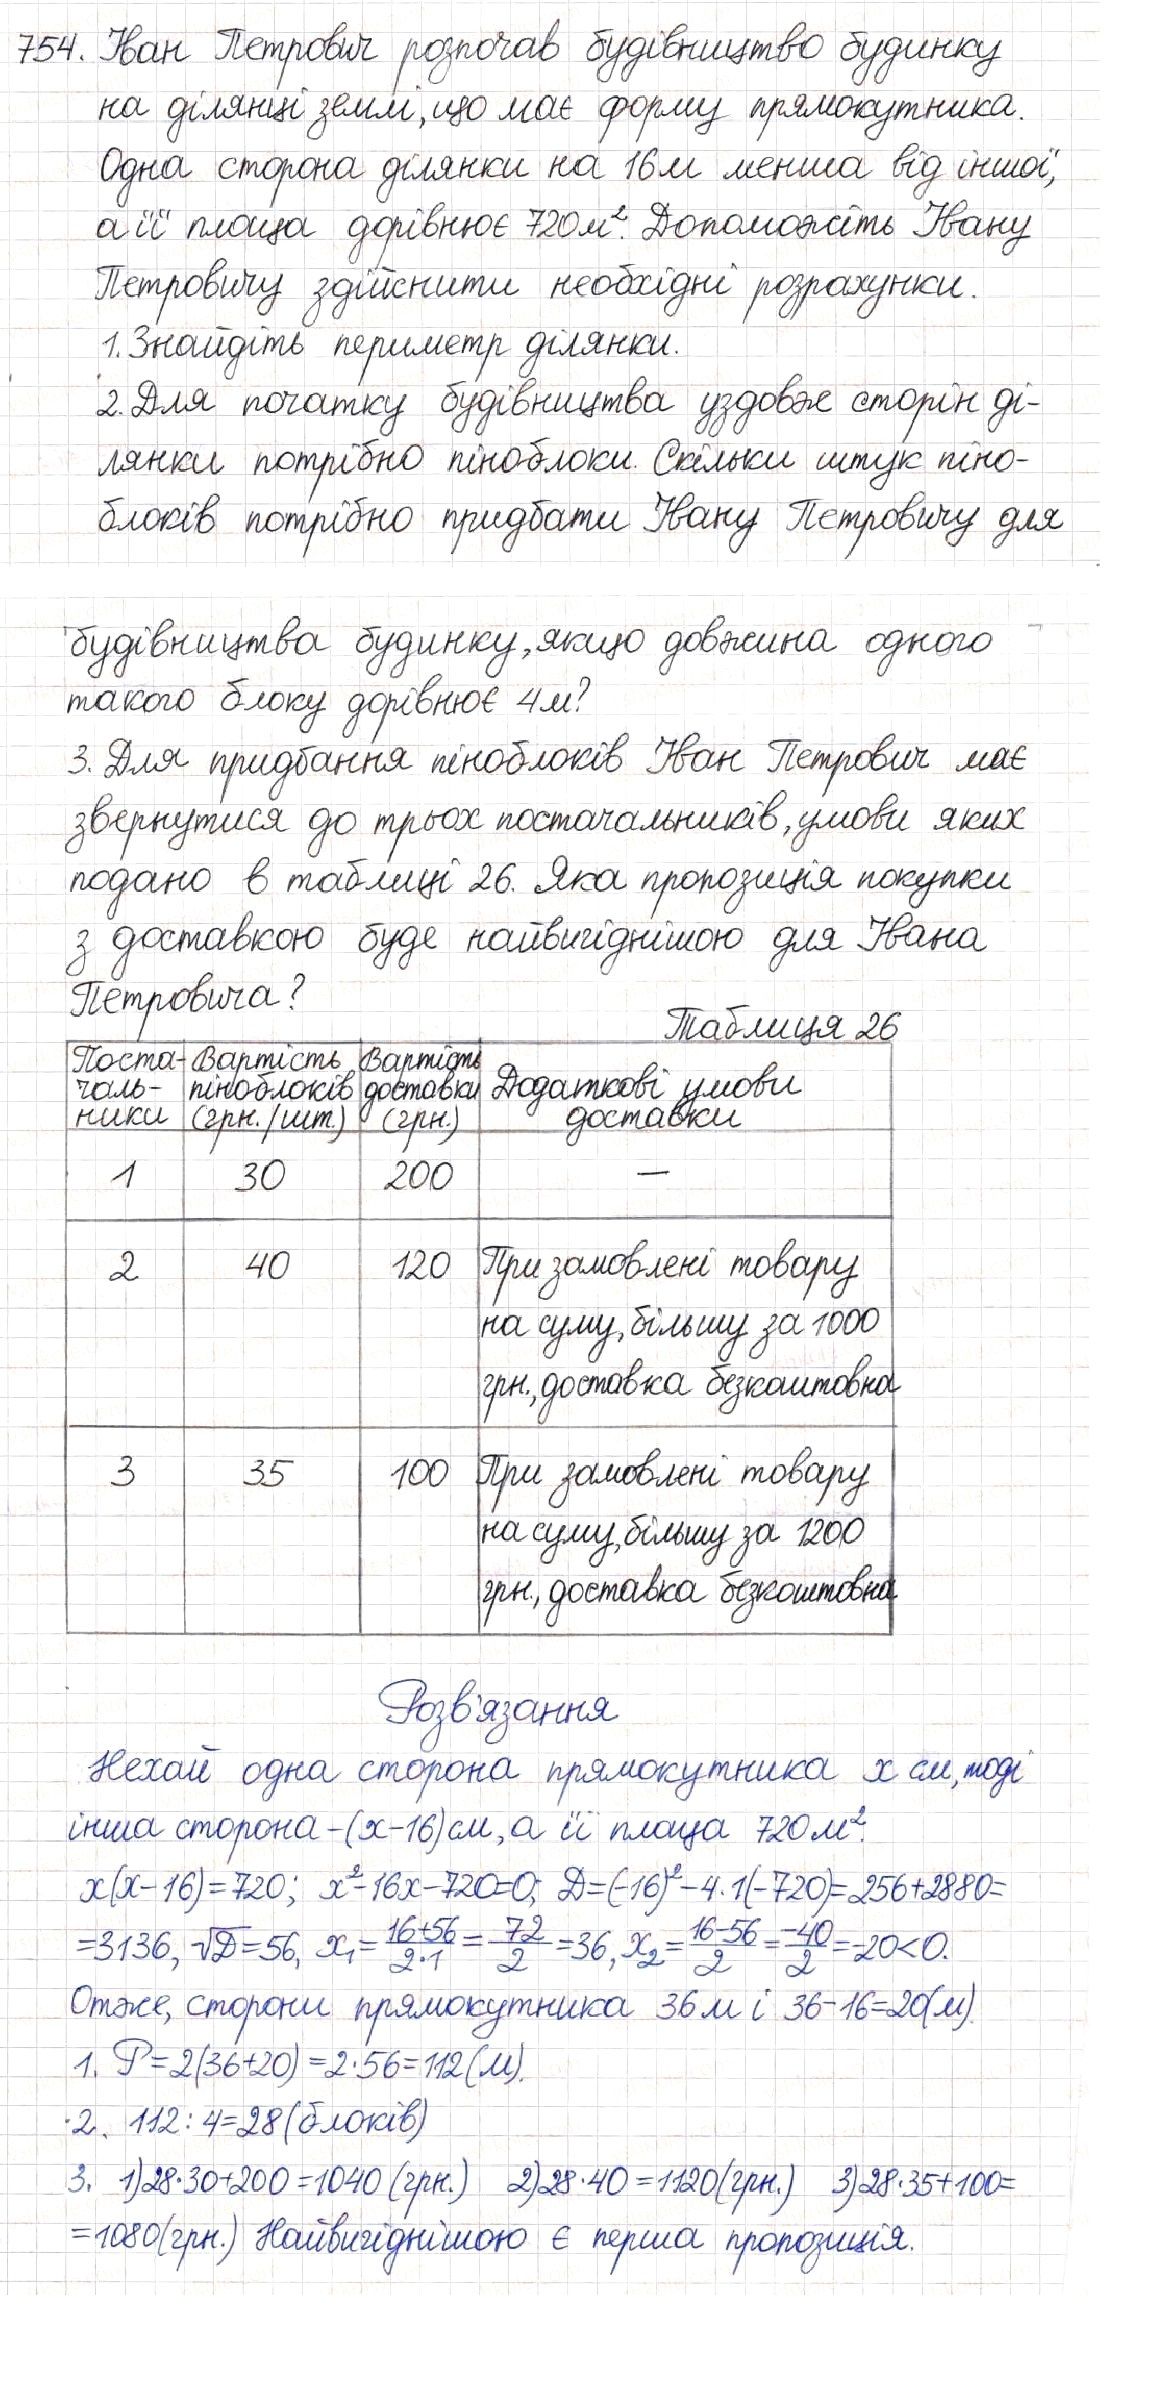 754. Іван Петрович розпочав будівництво будинку
на ділянці землі, що має форму прямокутника.
Одна сторона ділянки на 16м менша від іншої,
а її площа дорівнює 720м². Допоможіть Івану
Петровичу здійснити необхідні розрахунки.
1. Знайдіть периметр ділянки.
2. Для початку будівництва уздовж сторін ді-
лянки потрібно піноблоки. Скільки штук піно-
блоків потрібно придбати Івану Петровичу для
будівництва будинку, якщо довжина одного
такого блоку дорівнює 4м?
3. Для придбання піноблоків Іван Петрович має
звернутися до трьох постачальників, умови яких
подано в таблиці 26. Яка пропозиція покупки
з доставкою буде найвигіднішою для Івана
Петровича?
Таблиця 26
Поста- Вартість Вартість
чаль- піноблоків доставки Додаткові умови
ники (грн./шт.) (грн.) доставки
1 30 200 —
2 40 120 При замовлені товару
на суму, більшу за 1000
грн., доставка безкоштовна
3 35 100 При замовлені товару
на суму, більшу за 1200
грн., доставка безкоштовна
Розв'язання
Нехай одна сторона прямокутника x см, тоді
інша сторона – (x–16)см, а її площа 720м².
x(x–16)=720; x²–16x–720=0; D=(-16)²–4·1(–720)=256+2880=
=3136, √D=56, x₁=(16+56)/(2·1)=72/2=36, x₂=(16–56)/2=–40/2=-20<0.
Отже, сторони прямокутника 36м і 36–16=20(м).
1. P=2(36+20)=2·56=112(м).
2. 112:4=28(блоків)
3. 1)28·30+200=1040(грн.) 2)28·40=1120(грн.) 3)28·35+100=
=1080(грн.) Найвигіднішою є перша пропозиція.